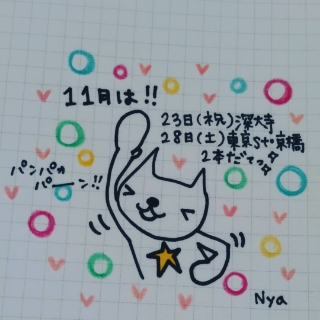 11月は!!
23日(祝)深大寺
28日(土)東京St.京橋
2本だてっ☆
パンパカ
パーーン!!
Nya